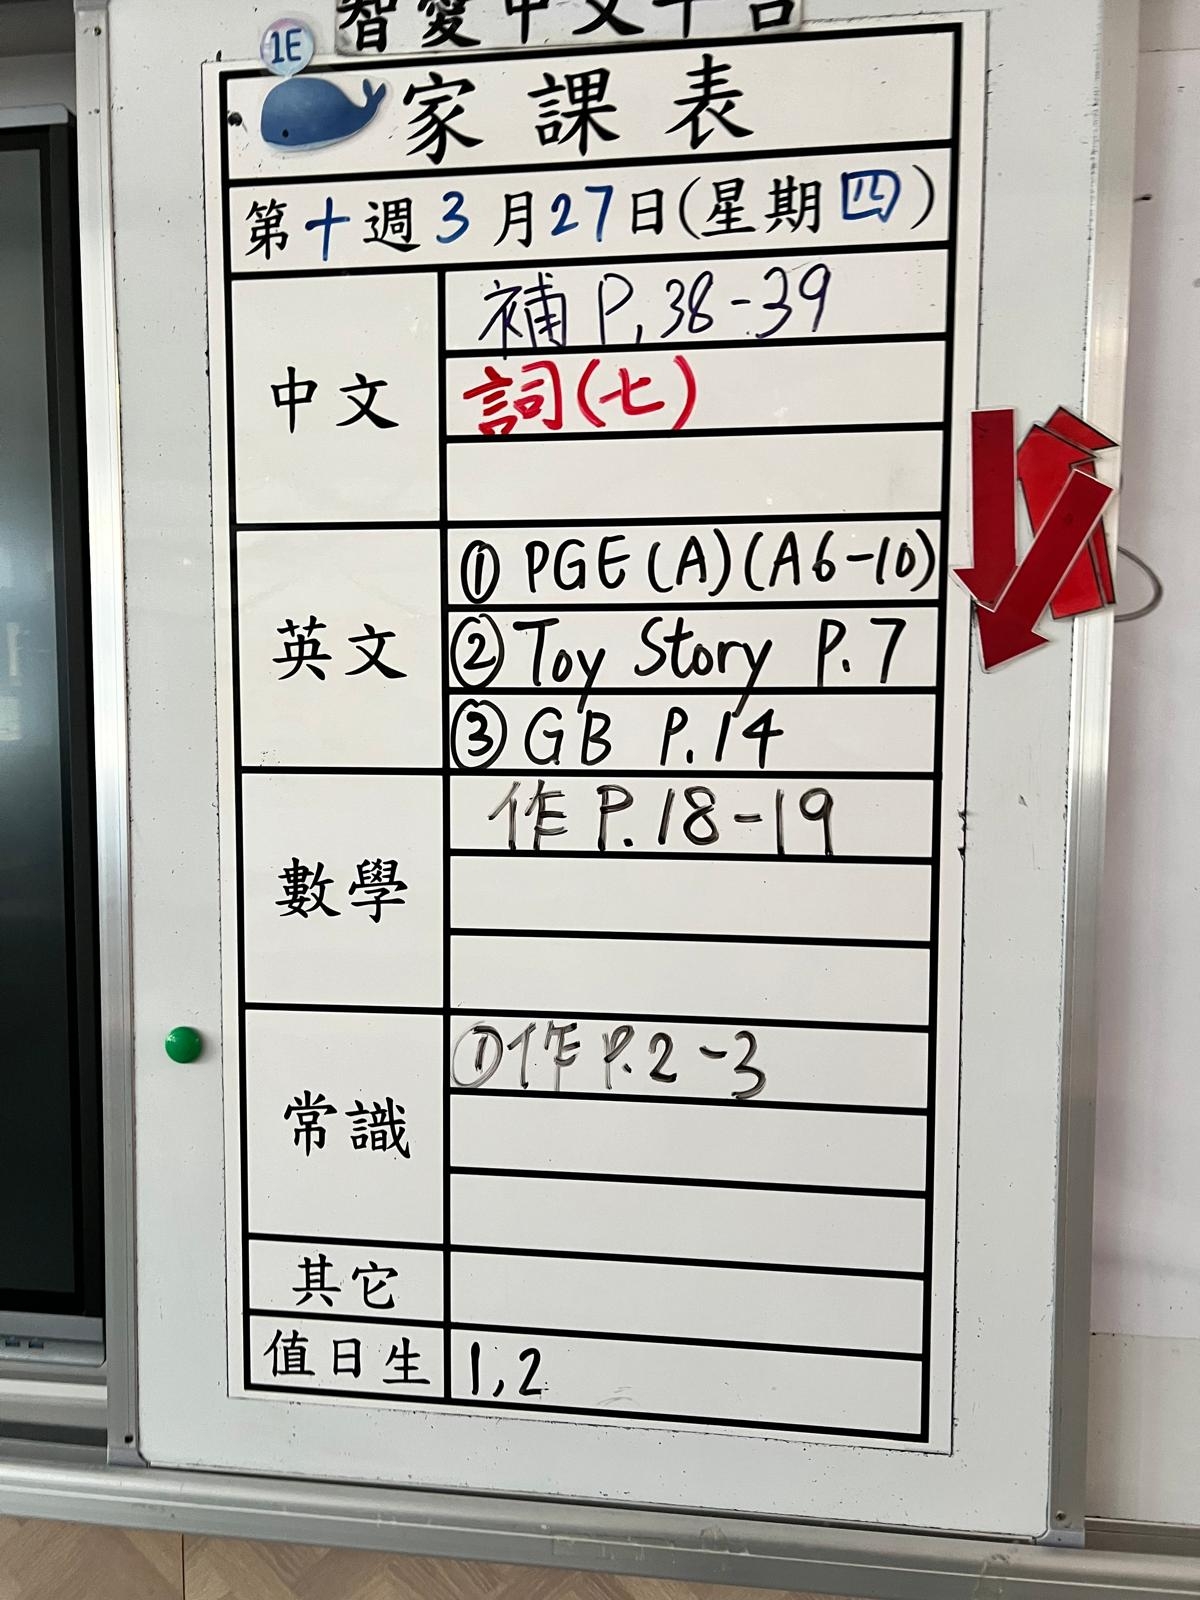 智愛中文平台
1E
家課表
第十週3月27日(星期四)
中文
補 P.38-39
詞(七)
英文
① PGE (A) (A6-10)
② Toy Story P.7
③ GB P.14
數學
作 P.18-19
常識
①作 P.2-3
其它
值日生
1,2